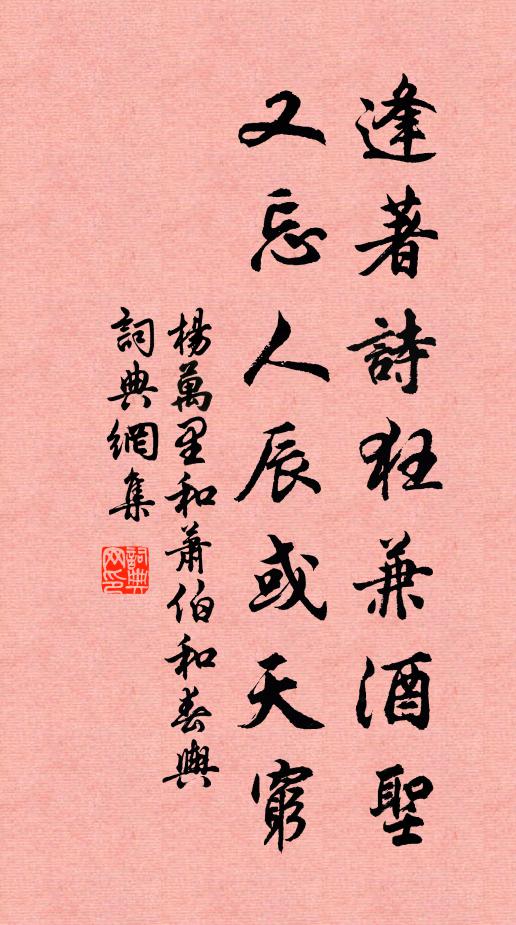 逢著詩狂兼酒聖
又忘人辰或天窮
楊萬里和蕭伯和春興
詞典網集
詞典網印